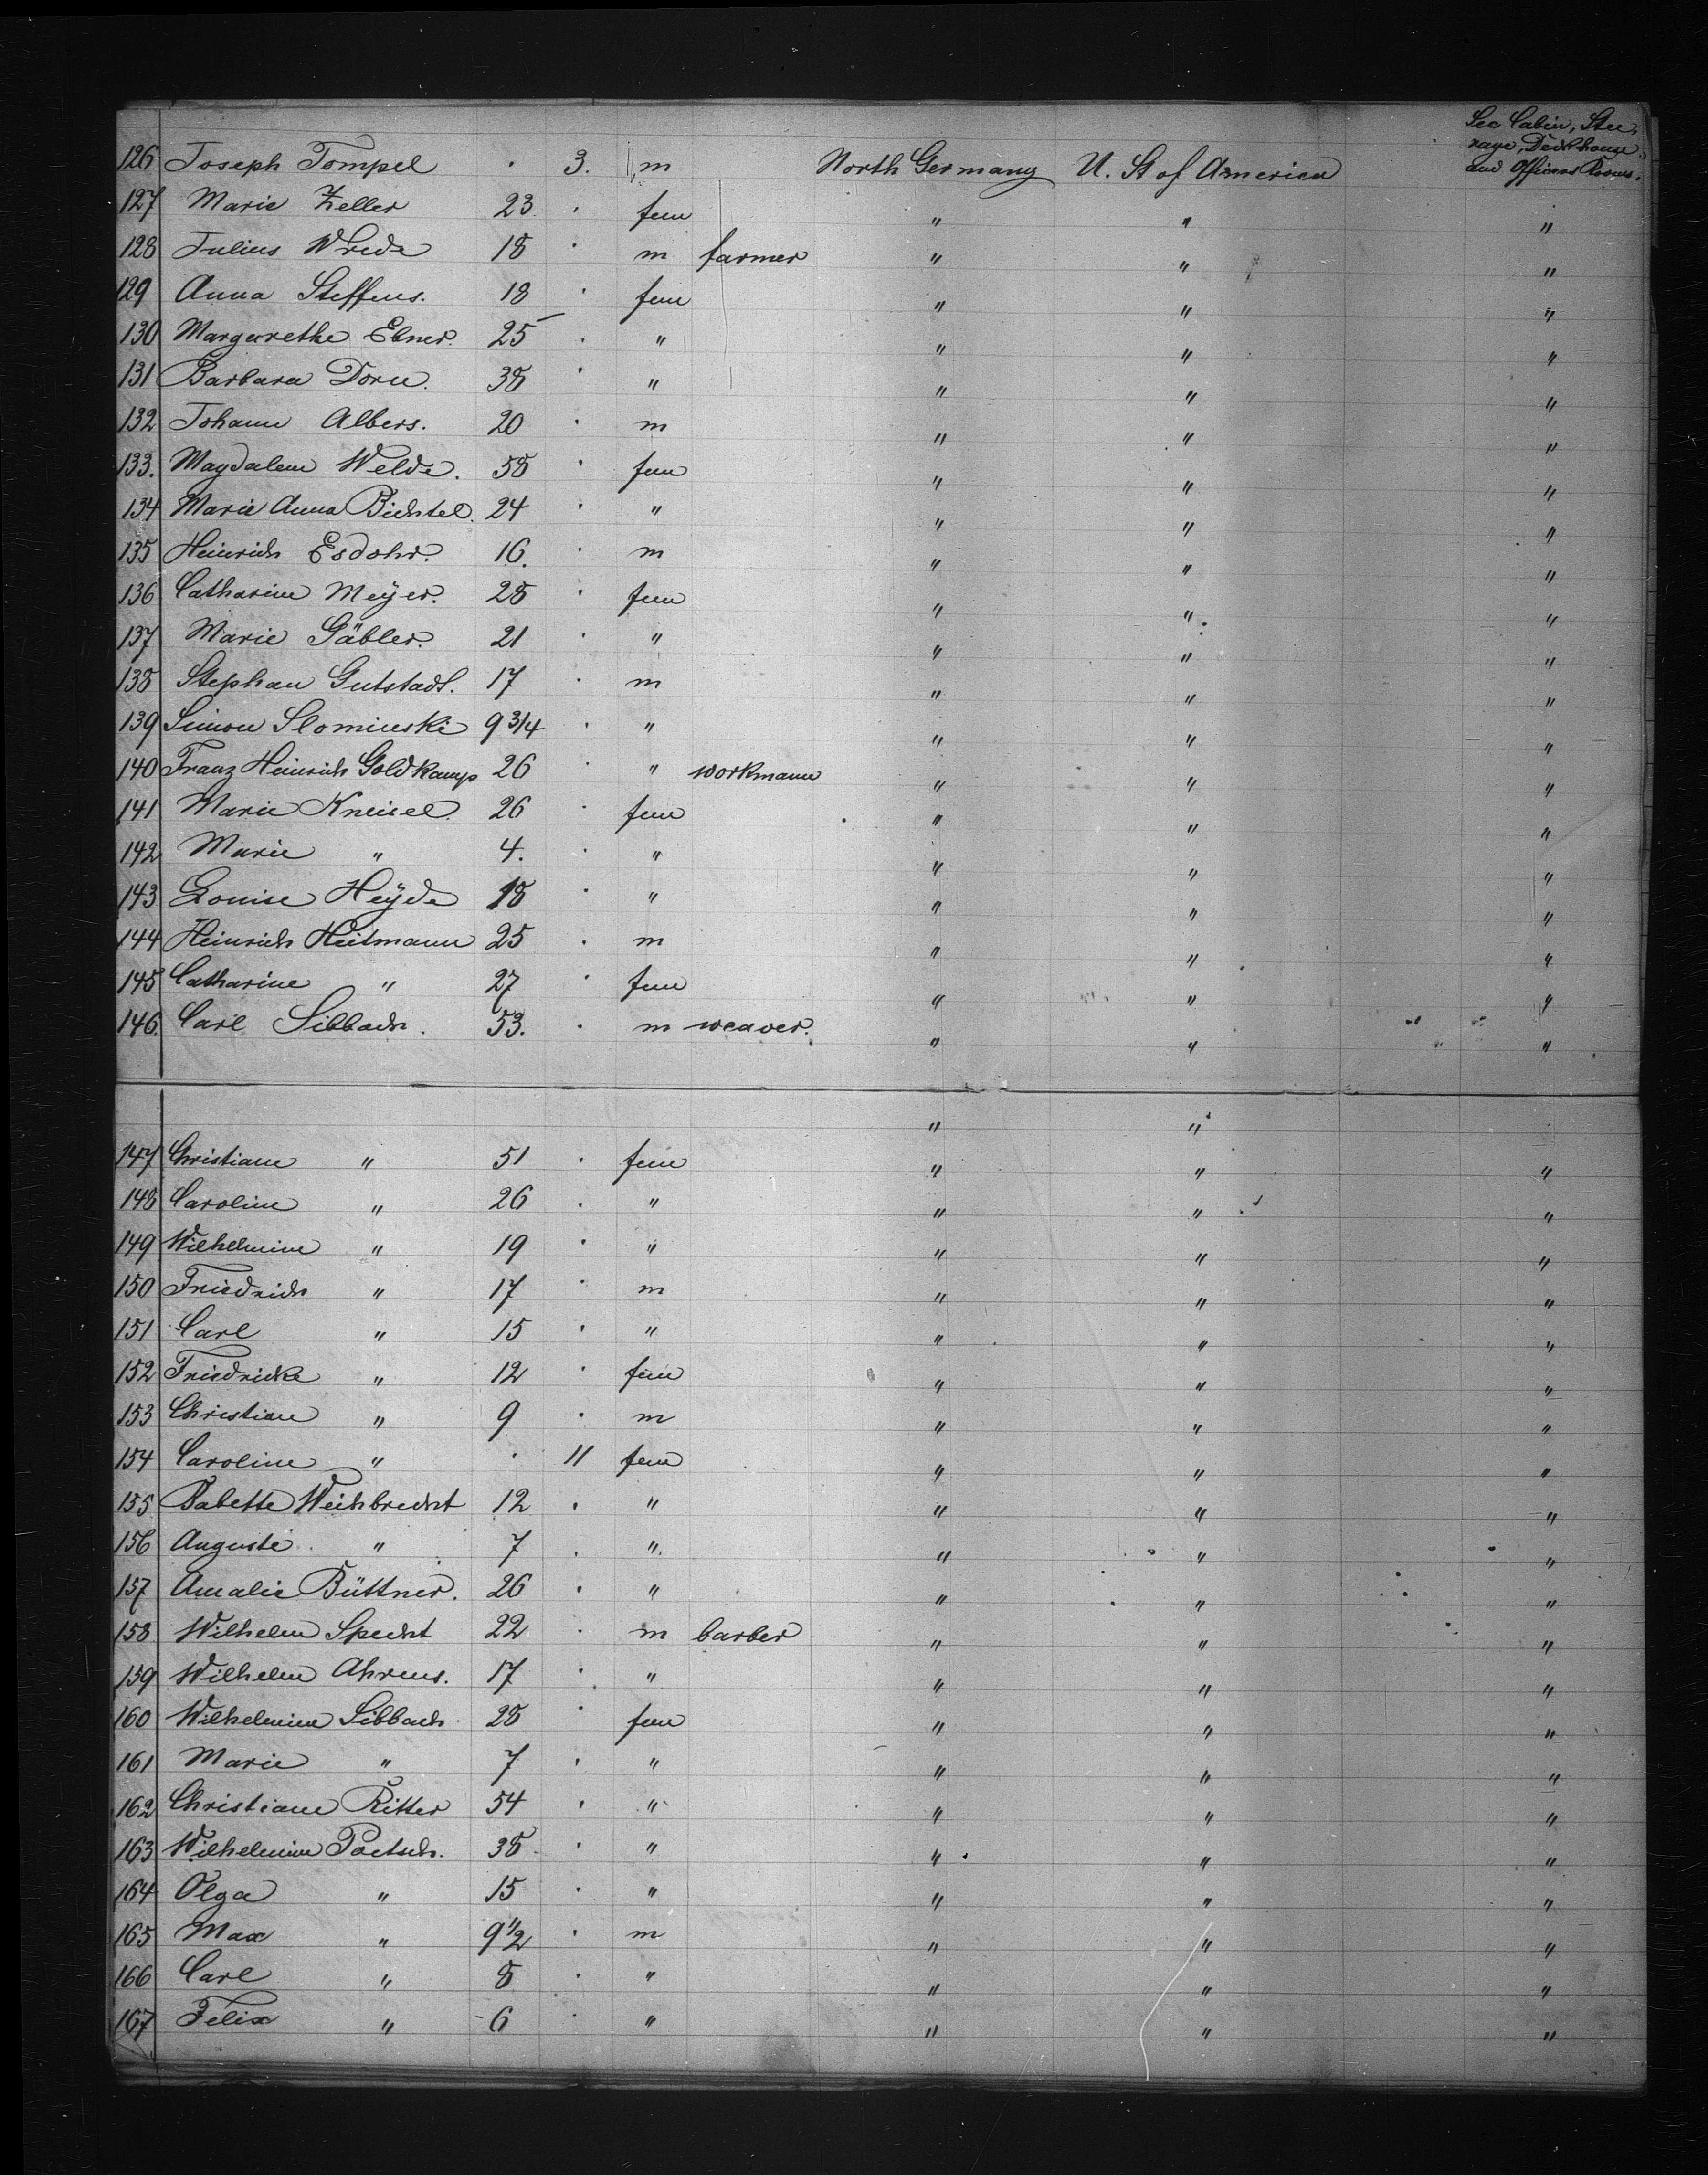 Sec Cabin, Stee
rage, Deckhouse
and Officers Rooms.
126 Joseph Tompel . 3. m North Germany U. St of America
127 Marie Zeller 23 . fem " " "
128 Julius Wrede 18 . m farmer " " "
129 Anna Steffens. 18 . fem " " "
130 Margarethe Ebner. 25 . " " " "
131 Barbara Dorn. 38 . " " " "
132 Johann Albers. 20 . m " " "
133. Magdalene Welde. 58 . fem " " "
134 Marie Anna Bichtel. 24 . " " " "
135 Heinrich Esdohr. 16. . m " " "
136 Catharine Meÿer. 28 . fem " " "
137 Marie Gäbler. 21 . " " " "
138 Stephan Gutstadt. 17 . m " " "
139 Simon Slominski 9 3/4 . " " " "
140 Franz Heinrich Goldkamp 26 . " workmann " " "
141 Marie Kneisel. 26 . fem " " "
142 Marie " 4. . " " " "
143 Louise Heÿde 18 . " " " "
144 Heinrich Heitmann 25 . m " " "
145 Catharine " 27 . fem " " "
146. Carl Sibbach. 53. . m weaver. " " "
" "
147 Christiane " 51 . fem " " "
148 Caroline " 26 . " " " "
149 Wilhelmine " 19 . " " " "
150 Friedrich " 17 . m " " "
151 Carl " 15 . " " " "
152 Friedricke " 12 . fem " " "
153 Christian " 9 . m " " "
154 Caroline " . 11 fem " " "
155 Babette Weihbrecht 12 . " " " "
156 Auguste " 7 . " " " "
157 Amalie Büttner. 26 . " " " "
158 Wilhelm Specht 22 . m barber " " "
159 Wilhelm Ahrens. 17 . " " " "
160 Wilhelmine Sibbach 28 . fem " " "
161 Marie " 7 . " " " "
162 Christiane Ritter 54 . " " " "
163 Wilhelmine Poetsch. 38 . " " " "
164 Olga " 15 . " " " "
165 Max " 9 1/2 . m " " "
166 Carl " 8 . " " " "
167 Felix " 6 . " " " "